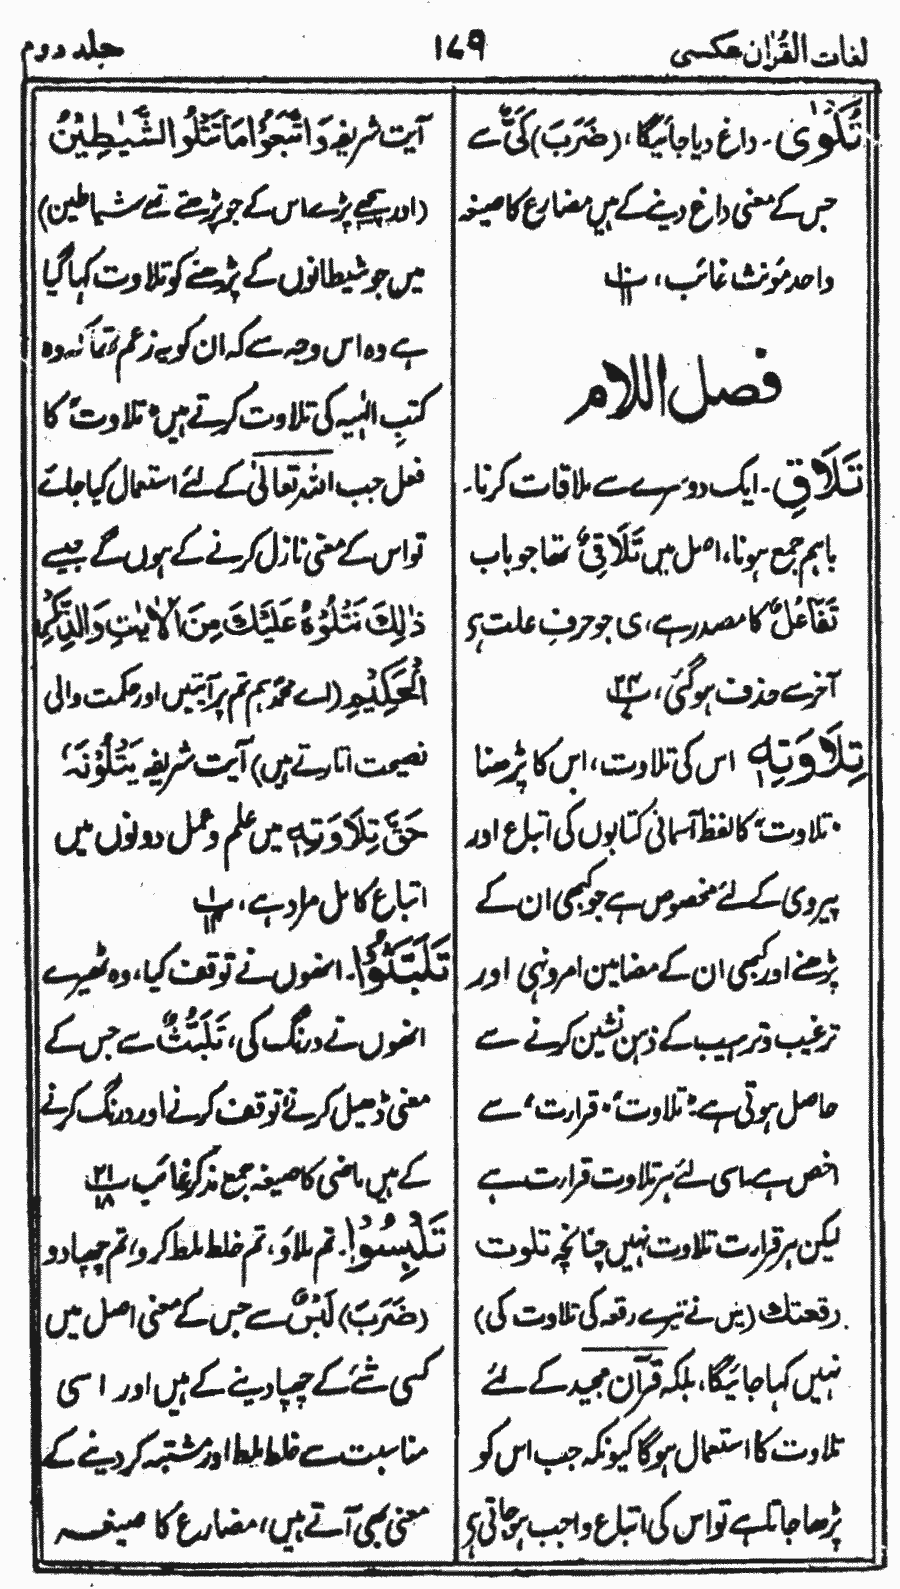 لغات القرآن عکسی
۱۷۹
جلد دوم
تُکْوٰی ۔ داغ دیا جائیگا، (ضَرَبَ) کَیٌّ سے
جس کے معنی داغ دینے کے ہیں مضارع کا صیغہ
واحد مؤنث غائب، پ۱۰ ۱۱
فصل اللام
تَلَاقٍ ۔ ایک دوسرے سے ملاقات کرنا۔
باہم جمع ہونا، اصل میں تَلَاقِیٌ تھا جو باب
تَفَاعُلٌ کا مصدر ہے، ی جو حرفِ علت ہی
آخر سے حذف ہوگئی، پ۲۴
تِلَاوَتِہٖ اس کی تلاوت، اس کا پڑھنا
"تلاوت" کا لفظ آسمانی کتابوں کی اتباع اور
پیروی کے لئے مخصوص ہے جو کبھی ان کے
پڑھنے اور کبھی ان کے مضامین امرونہی اور
ترغیب و ترہیب کے ذہن نشین کرنے سے
حاصل ہوتی ہے، "تلاوت"، "قرارت" سے
اخص ہے، اسی لئے ہر تلاوت قرارت ہے
لیکن ہر قرارت تلاوت نہیں چنانچہ تلوت
رقعتك (میں نے تیرے رقعہ کی تلاوت کی)
نہیں کہا جائیگا، بلکہ قرآن مجید کے لئے
تلاوت کا استعمال ہوگا کیونکہ جب اس کو
پڑھا جاتا ہے تو اس کی اتباع واجب ہوجاتی ہی
آیت شریفہ وَاتَّبَعُوْا مَا تَتْلُوا الشَّیٰطِیْنُ
(اور پیچھے پڑے اس کے جو پڑھتے تھے شیاطین)
میں جو شیطانوں کے پڑھنے کو تلاوت کہا گیا
ہے وہ اس وجہ سے کہ ان کو یہ زعم تھا کہ وہ
کتبِ الٰہیہ کی تلاوت کرتے ہیں، "تلاوت" کا
فعل جب اللہ تعالیٰ کے لئے استعمال کیا جائے
تو اس کے معنی نازل کرنے کے ہوں گے جیسے
ذٰلِكَ نَتْلُوْہُ عَلَیْكَ مِنَ الْاٰیٰتِ وَالذِّکْرِ
الْحَکِیْمِ (اے محمدؐ ہم تم پر آیتیں اور حکمت والی
نصیحت اتارتے ہیں) آیت شریفہ یَتْلُوْنَہٗ
حَقَّ تِلَاوَتِہٖ میں علم و عمل دونوں میں
اتباع کامل مراد ہے، پ۱ ۱۴
تَلَبَّثُوْا ۔ انھوں نے توقف کیا، وہ ٹھیرے
انھوں نے درنگ کی، تَلَبُّثٌ سے جس کے
معنی ڈھیل کرنے، توقف کرنے اور درنگ کرنے
کے ہیں ماضی کا صیغہ جمع مذکر غائب، پ۲۱ ۱۸
تَلْبِسُوْا ۔ تم ملاؤ، تم خلط ملط کرو، تم چھپادو
(ضَرَبَ) لَبْسٌ سے جس کے معنی اصل میں
کسی شے کے چھپادینے کے ہیں اور اسی
مناسبت سے خلط ملط اور مشتبہ کر دینے کے
معنی بھی آتے ہیں، مضارع کا صیغہ